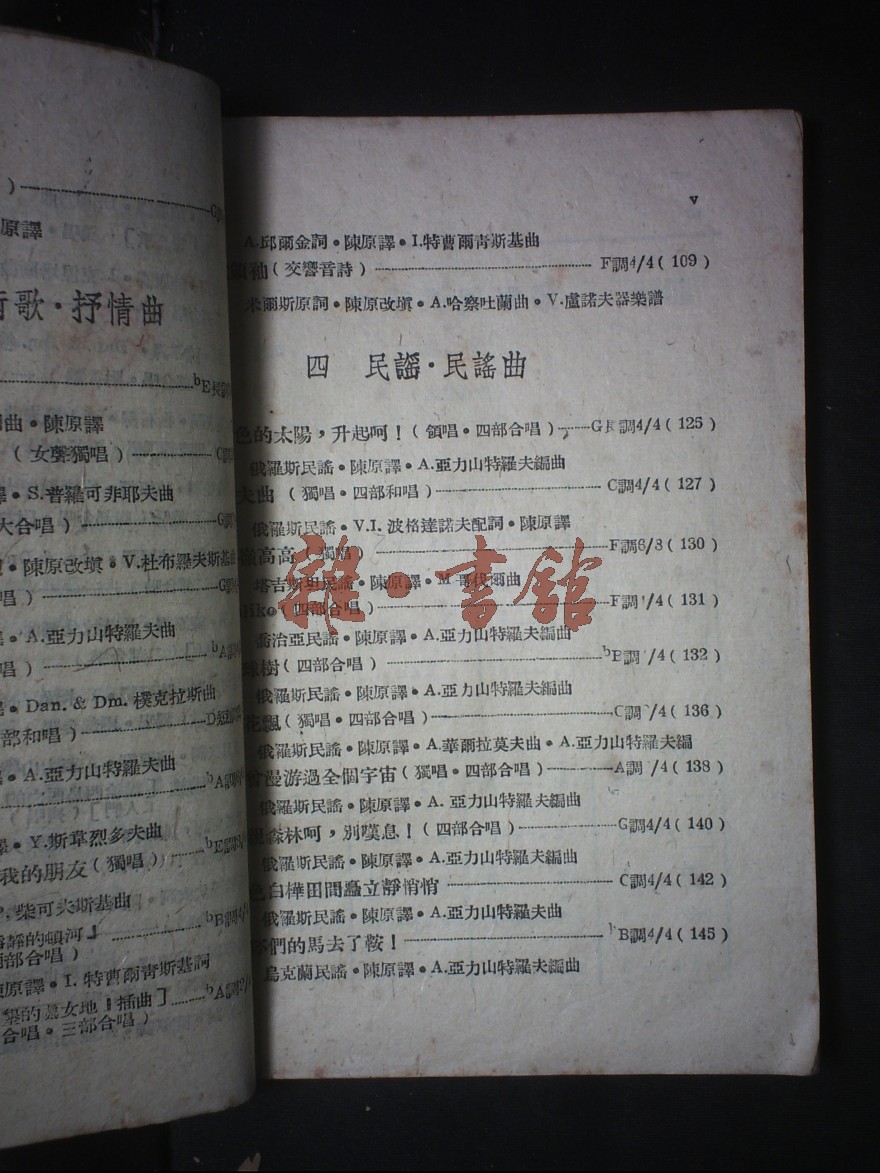 原譯
歌·抒情曲
曲·陳原譯
(女聲獨唱)
S.普羅可非耶夫曲
大合唱)
陳原改塡·V.杜布羅夫斯基曲
唱)
A.亞力山特羅夫曲
唱)
Dan. & Dm. 樸克拉斯曲
部和唱)
A.亞力山特羅夫曲
Y.斯韋烈多夫曲
我的朋友(獨唱)
柴可夫斯基曲
的頓河』
部合唱)
原譯·I.特曹爾靑斯基詞
墾的處女地』插曲]
合唱·三部合唱)
v
A.邱爾金詞·陳原譯·I.特曹爾靑斯基曲
袖(交響音詩) F調4/4(109)
米爾斯原詞·陳原改塡·A.哈察吐蘭曲·V.盧諾夫器樂譜
四 民謠·民謠曲
色的太陽,升起呵!(領唱·四部合唱) G長調4/4(125)
俄羅斯民謠·陳原譯·A.亞力山特羅夫編曲
夫曲(獨唱·四部和唱) C調4/4(127)
俄羅斯民謠·V.I.波格達諾夫配詞·陳原譯
高高(獨唱) F調6/8(130)
塔吉斯坦民謠·陳原譯·M.
(四部合唱) F調 /4(131)
喬治亞民謠·陳原譯·A.亞力山特羅夫編曲
樹(四部合唱) bB調 /4(132)
俄羅斯民謠·陳原譯·A.亞力山特羅夫編曲
飄(獨唱·四部合唱) C調 /4(136)
俄羅斯民謠·陳原譯·A.華爾拉莫夫曲·A.亞力山特羅夫編
漫游過全個宇宙(獨唱·四部合唱) A調 /4(138)
俄羅斯民謠·陳原譯·A.亞力山特羅夫編曲
森林呵,別嘆息!(四部合唱) G調4/4(140)
俄羅斯民謠·陳原譯·A.亞力山特羅夫編曲
色白樺田間矗立靜悄悄 C調4/4(142)
俄羅斯民謠·陳原譯·A.亞力山特羅夫曲
們的馬去了鞍! bB調4/4(145)
烏克蘭民謠·陳原譯·A.亞力山特羅夫編曲
雜·書館